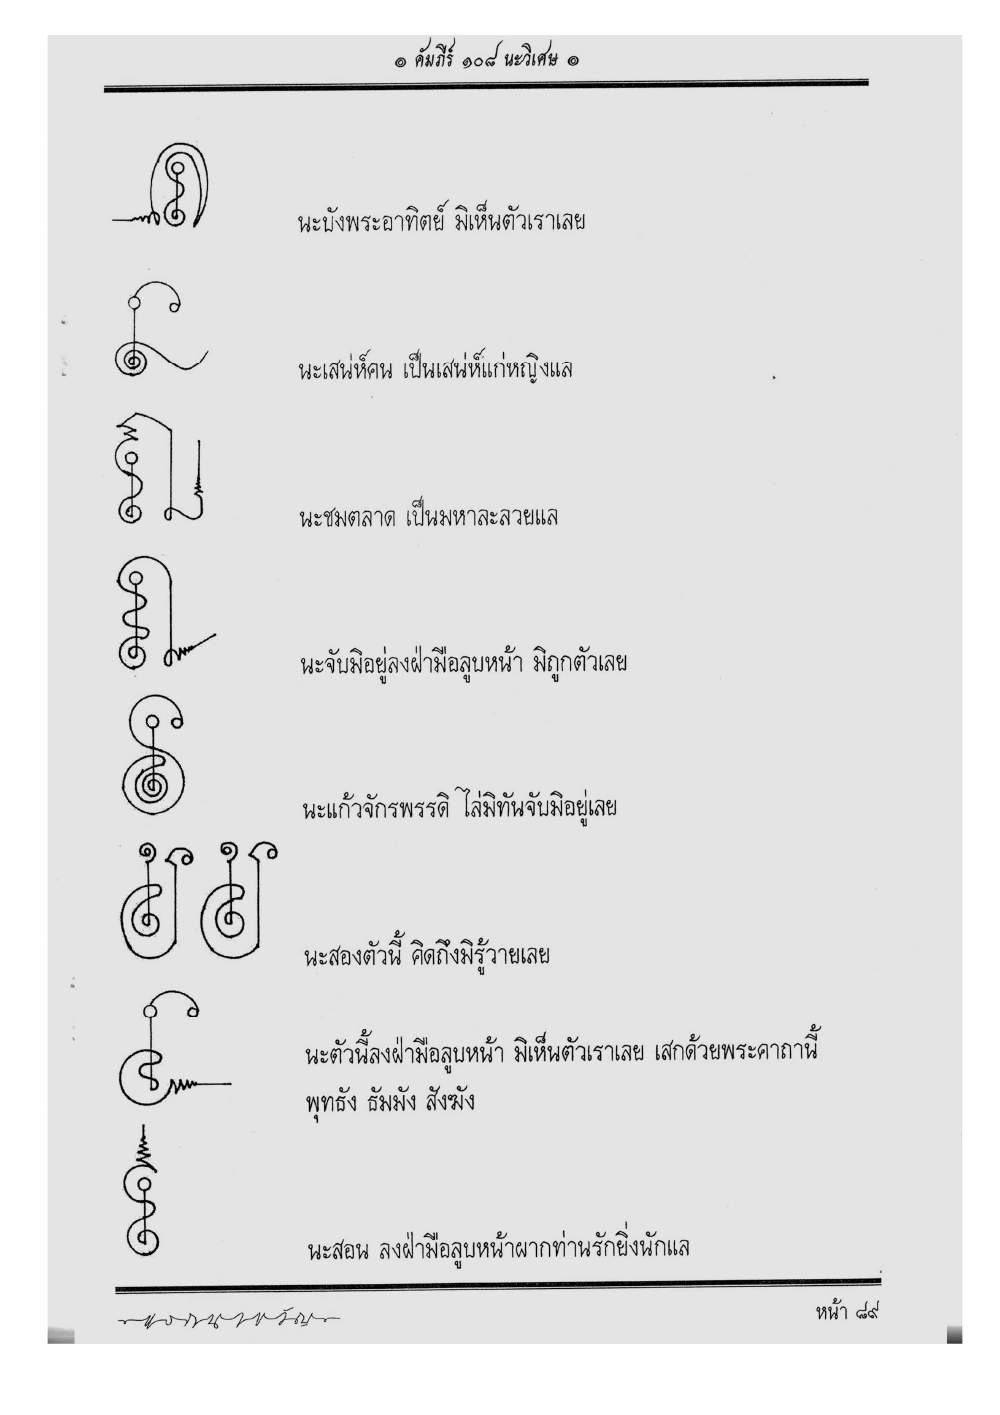 ๏ คัมภีร์ ๑๐๘ นะวิเศษ ๏
นะบังพระอาทิตย์ มิเห็นตัวเราเลย
นะเสน่ห์คน เป็นเสน่ห์แก่หญิงแล
นะชมตลาด เป็นมหาละลวยแล
นะจับมิอยู่ลงฝ่ามือลูบหน้า มิถูกตัวเลย
นะแก้วจักรพรรดิ ไล่มิทันจับมิอยู่เลย
นะสองตัวนี้ คิดถึงมิรู้วายเลย
นะตัวนี้ลงฝ่ามือลูบหน้า มิเห็นตัวเราเลย เสกด้วยพระคาถานี้
พุทธัง ธัมมัง สังฆัง
นะสอน ลงฝ่ามือลูบหน้าผากท่านรักยิ่งนักแล
หน้า ๘๙